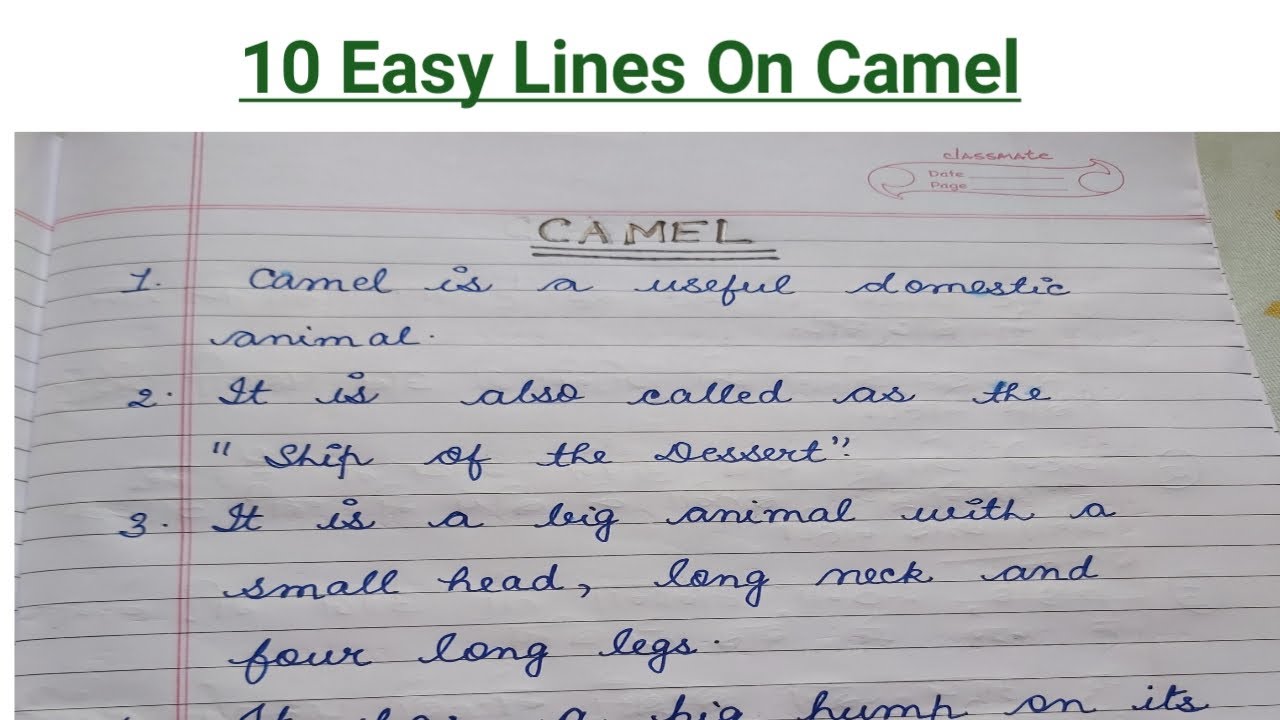 10 Easy Lines On Camel
classmate
Date
Page
CAMEL
1. Camel is a useful domestic
animal.
2. It is also called as the
"Ship of the Dessert".
3. It is a big animal with a
small head, long neck and
four long legs.
It has a big hump on its